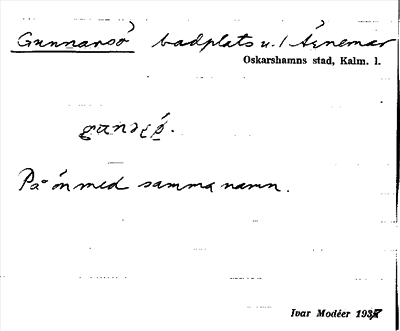 Gunnarsö badplats u. /
Oskarshamns stad, Kalm. l.
På ön med samma namn.
Ivar Modéer 1937